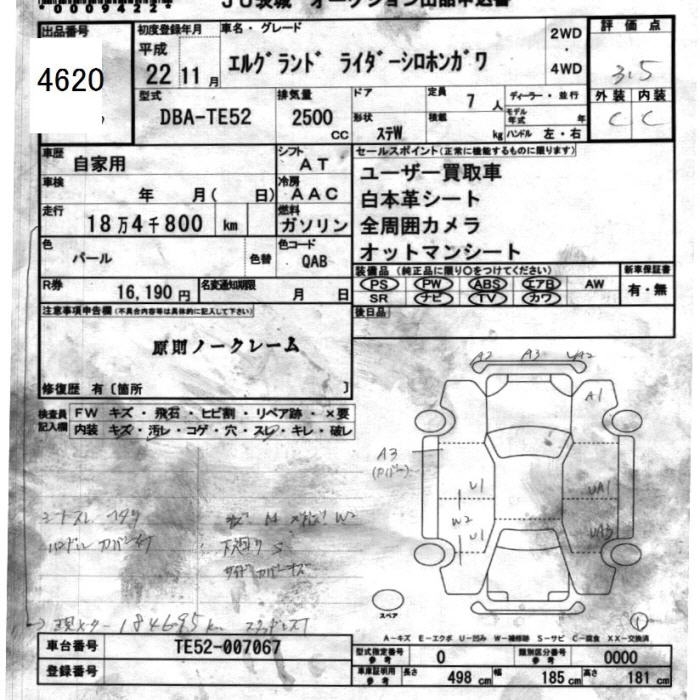 00094224
JU茨城 オークション出品申込書
出品番号
4620
初度登録年月
平成
22 11 月
車名・グレード
エルグランド ライダーシロホンガワ
2WD
・
4WD
評価点
3.5
外装 内装
C C
型式
DBA-TE52
排気量
2500
CC
ドア
形状
ステW
定員
7 人
積載
kg
ディーラー・並行
モデル年式 年
ハンドル 左・右
車歴
自家用
シフト
AT
車検
年 月( 日)
冷房
AAC
走行
18万4千800 km
燃料
ガソリン
色
パール
色替
色コード
QAB
R券
16,190円
名変通知期限
月 日
セールスポイント(正常に機能するものに限ります)
ユーザー買取車
白本革シート
全周囲カメラ
オットマンシート
装備品 (純正品に限り○をつけてください)
PS PW ABS エアB AW
SR ナビ TV カワ
新車保証書
有・無
後日品
注意事項申告欄(不具合内容等は具体的に記入して下さい)
原則ノークレーム
修復歴 有〔箇所 〕
検査員
記入欄
FW キズ・飛石・ヒビ割・リペア跡・×要
内装 キズ・汚レ・コゲ・穴・スレ・キレ・破レ
A2 A3 UA2
A1
A3
U1
UA1
W2
U1
UA3
下廻り S
184695km
スペア
1
A-キズ E-エクボ U-凹み W-補修跡 S-サビ C-腐食 XX-交換済
車台番号
TE52-007067
登録番号
型式指定番号
参考
0
類別区分番号
参考
0000
車庫証明用
参考
長さ 498 cm 幅 185 cm 高さ 181 cm